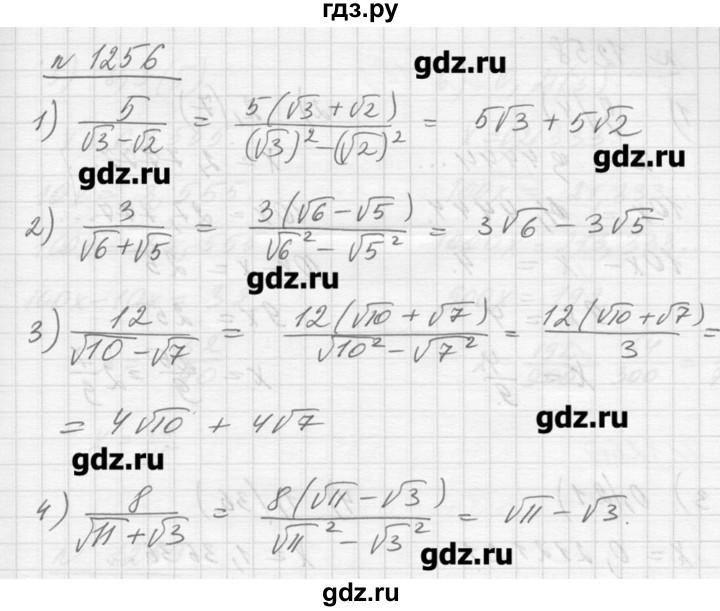 гдз.ру
n 1256
gdz.ru
1) 5/(√3-√2) = 5(√3+√2)/((√3)²-(√2)²) = 5√3+5√2
gdz.ru
gdz.ru
2) 3/(√6+√5) = 3(√6-√5)/(√6²-√5²) = 3√6-3√5
gdz.ru
3) 12/(√10-√7) = 12(√10+√7)/(√10²-√7²) = 12(√10+√7)/3 =
= 4√10 + 4√7
gdz.ru
gdz.ru
4) 8/(√11+√3) = 8(√11-√3)/(√11²-√3²) = √11-√3.
gdz.ru
gdz.ru